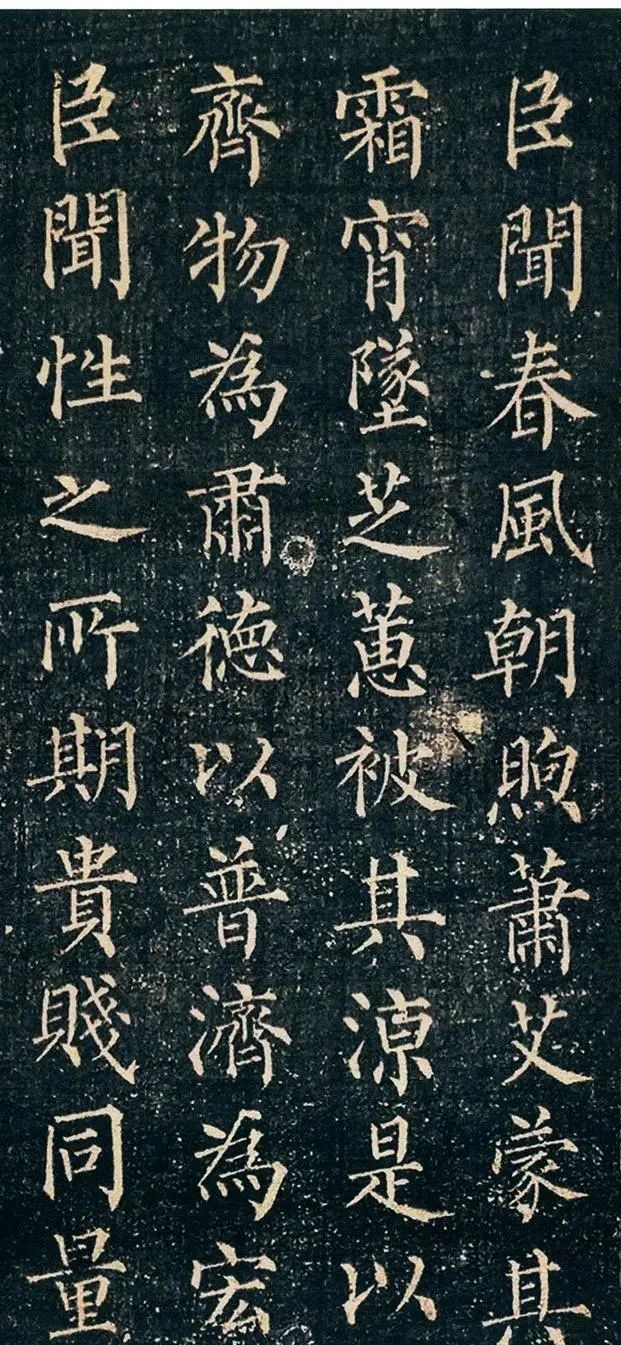 臣聞春風朝煦蕭艾蒙其
霜宵墜芝蕙被其涼是以
齊物為肅德以普濟為宏
臣聞性之所期貴賤同量